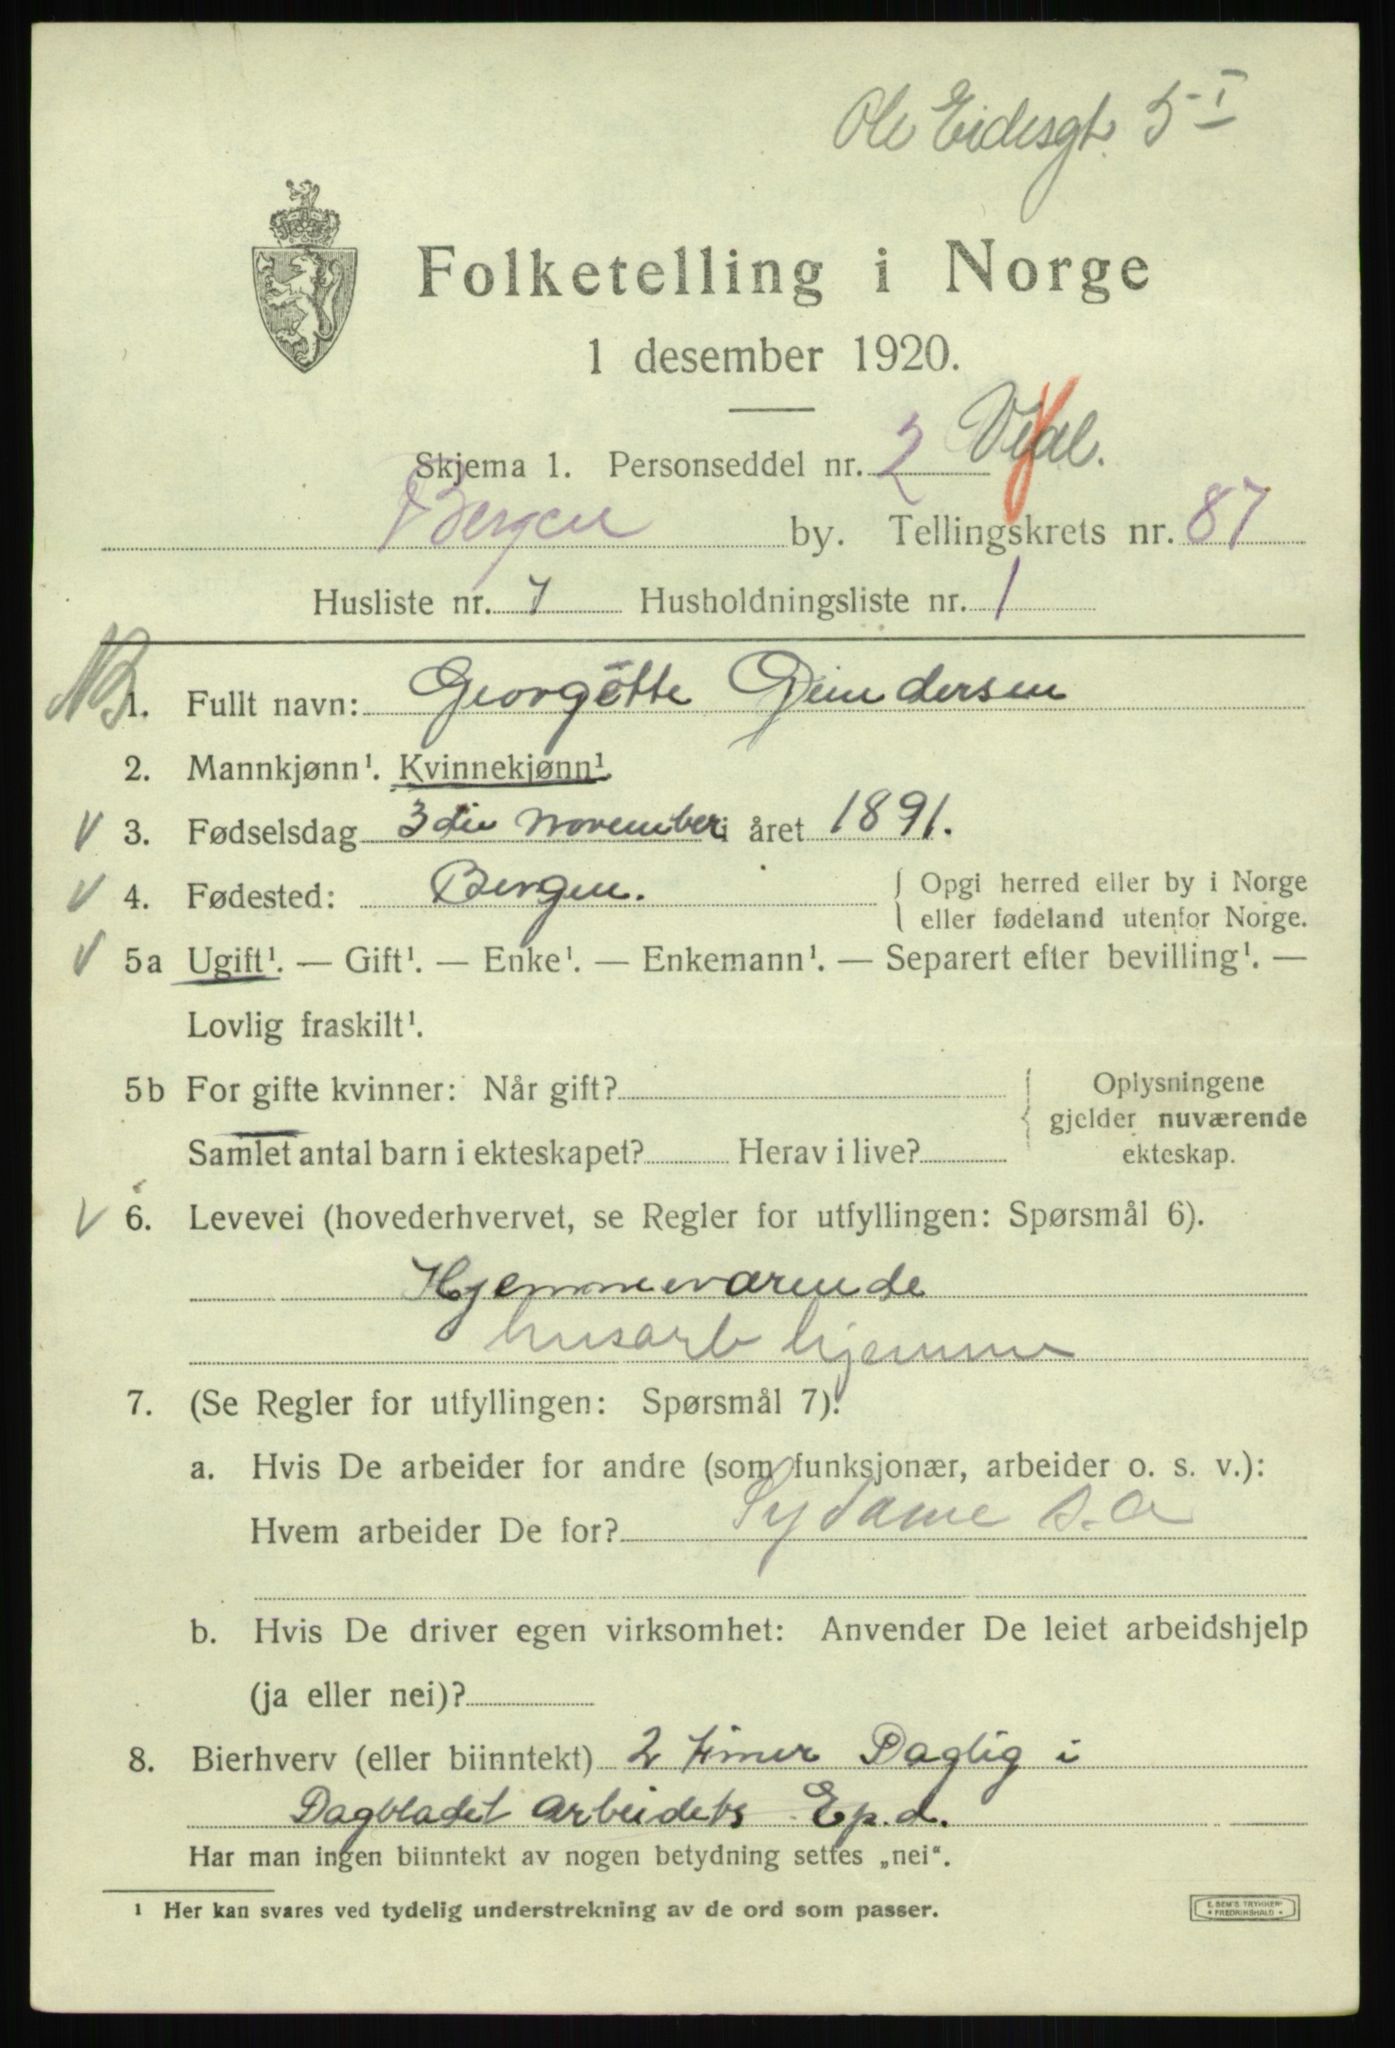 Ole Eidesgt. 5-I
Folketelling i Norge
1 desember 1920.
Skjema 1. Personseddel nr. 2
Bergen by. Tellingskrets nr. 87
Husliste nr. 7 Husholdningsliste nr. 1
NB
1. Fullt navn: Georgette Gundersen
2. Mannkjønn¹. Kvinnekjønn¹.
V 3. Fødselsdag 3die November i året 1891.
V 4. Fødested: Bergen. { Opgi herred eller by i Norge
eller fødeland utenfor Norge.
V 5a Ugift¹. — Gift¹. — Enke¹. — Enkemann¹. — Separert efter bevilling¹. —
Lovlig fraskilt¹.
5b For gifte kvinner: Når gift? { Oplysningene
gjelder nuværende
Samlet antal barn i ekteskapet? Herav i live? ekteskap.
V 6. Levevei (hovederhvervet, se Regler for utfyllingen: Spørsmål 6).
Hjemmeværende
husarb hjemme
7. (Se Regler for utfyllingen: Spørsmål 7):
a. Hvis De arbeider for andre (som funksjonær, arbeider o. s. v.):
Hvem arbeider De for? Sydame s.a
b. Hvis De driver egen virksomhet: Anvender De leiet arbeidshjelp
(ja eller nei)?
8. Bierhverv (eller biinntekt) 2 timer Daglig i
Dagbladet Arbeidets Exp.d.
Har man ingen biinntekt av nogen betydning settes „nei“.
¹ Her kan svares ved tydelig understrekning av de ord som passer.
E. SEM'S TRYKKERI
FREDRIKSHALD